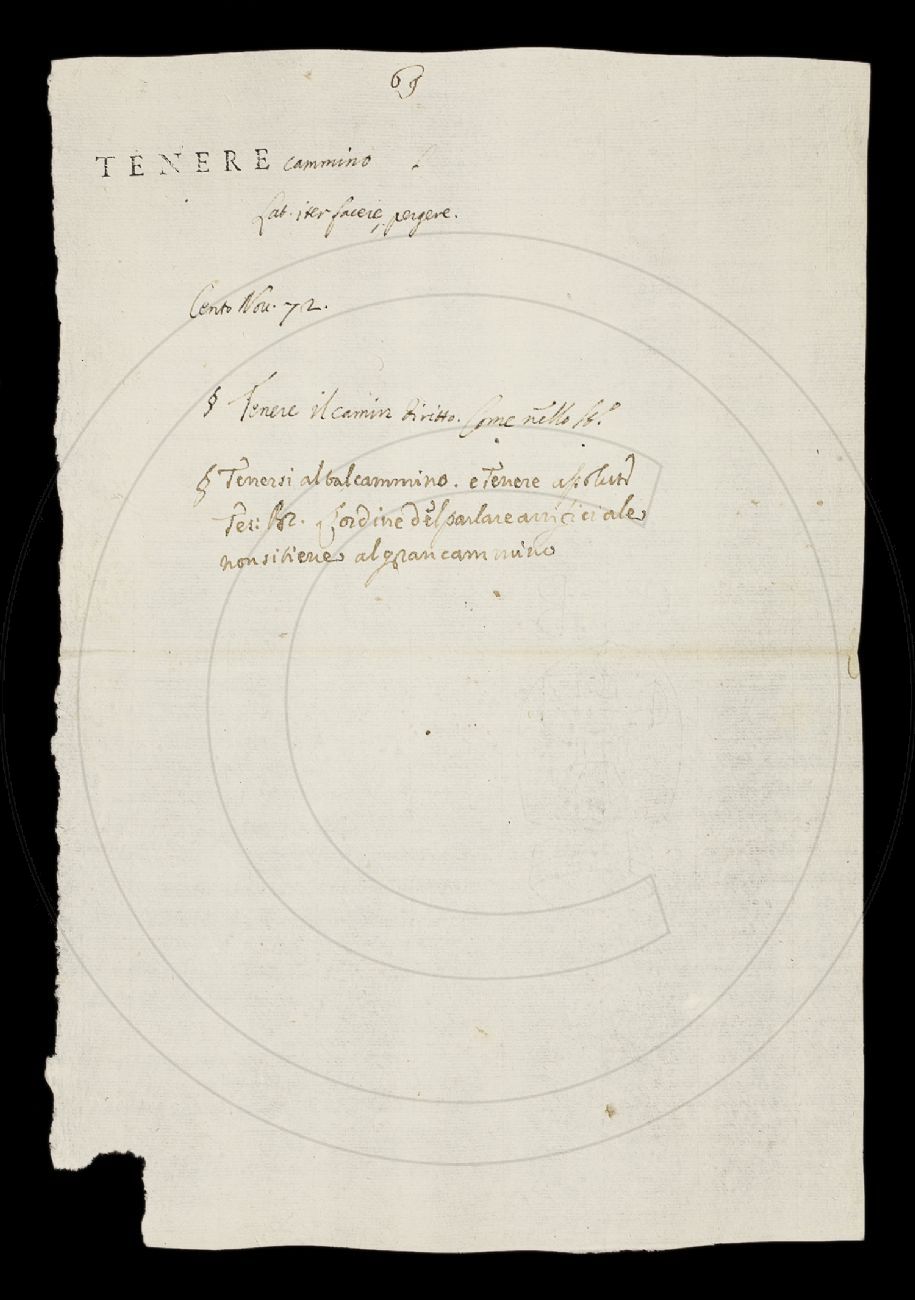 69
TENERE cammino
Lat. iter facere, pergere.
Cento Nov. 72.
§ Tenere il camin diritto. Come nello
§ Tenersi al tal cammino. e Tenere
Tes: Br. L'ordine del parlare artificiale
non si tiene al gran cammino